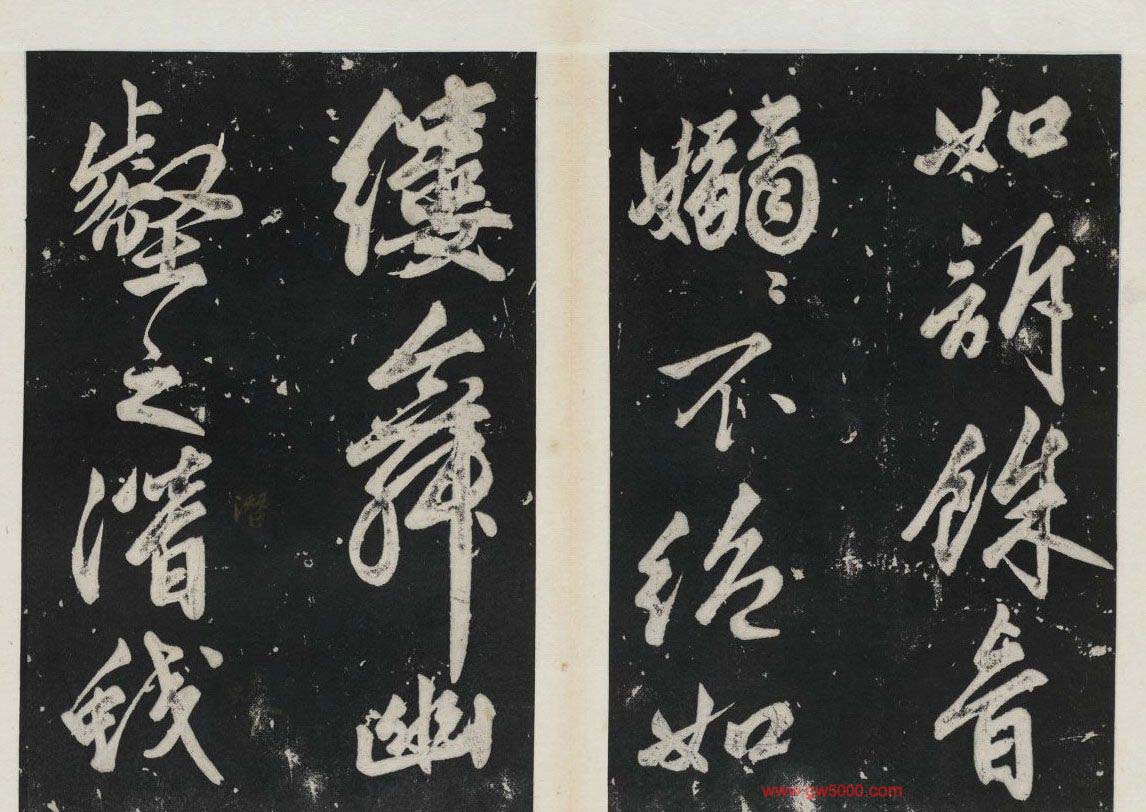 如訴餘音
嫋〻不絕如
縷舞幽
壑之潛蛟
潛
www.gw5000.com